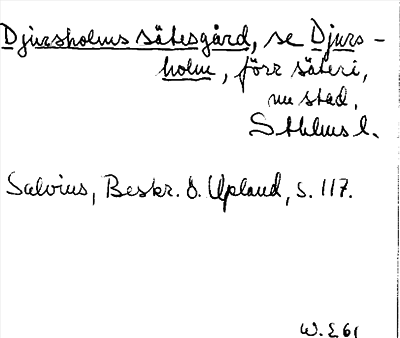 Djursholms sätesgård, se Djurs-
holm, förr säteri,
nu stad,
Sthlms l.
Salvius, Beskr. ö. Upland, s. 117.
W. E 61